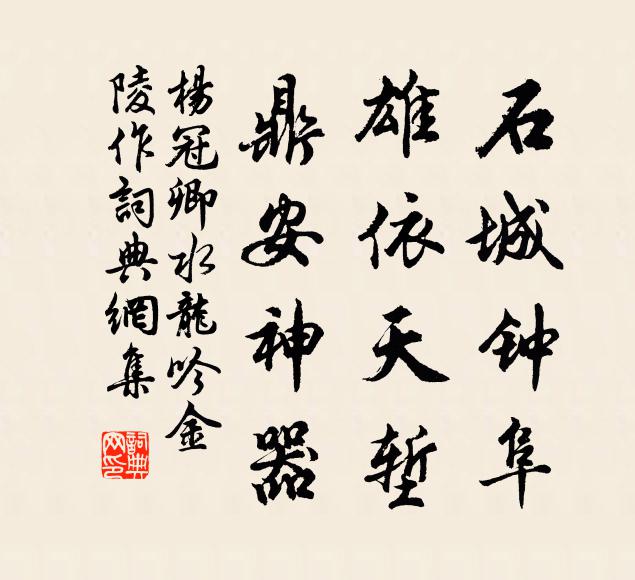 石城钟阜
雄依天堑
鼎安神器
楊冠卿水龍吟金
陵作詞典網集
詞典網印